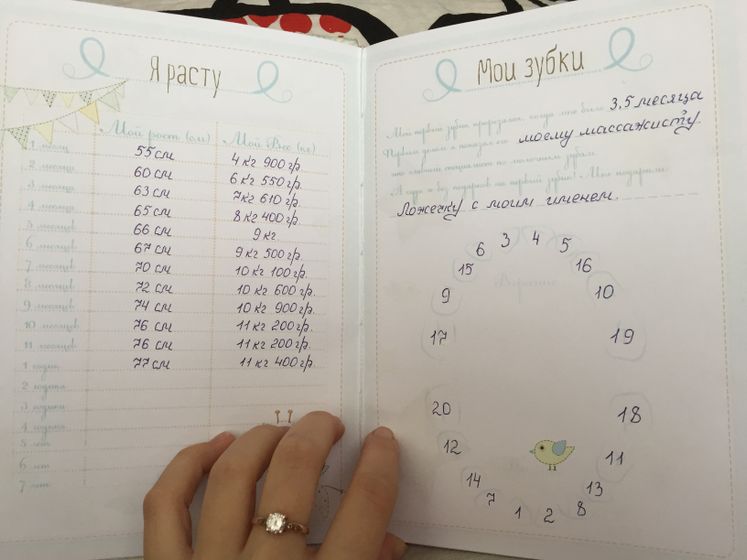 Я расту
Мой рост (см) Мой Вес (кг)
1 месяц 55 см 4 кг 900 гр.
2 месяца 60 см 6 кг 550 гр.
3 месяца 63 см 7 кг 610 гр.
4 месяца 65 см 8 кг 400 гр.
5 месяцев 66 см 9 кг
6 месяцев 67 см 9 кг 500 гр.
7 месяцев 70 см 10 кг 100 гр.
8 месяцев 72 см 10 кг 600 гр.
9 месяцев 74 см 10 кг 900 гр.
10 месяцев 76 см 11 кг 200 гр.
11 месяцев 76 см 11 кг 200 гр.
1 годик 77 см 11 кг 400 гр.
2 годика
3 годика
4 годика
5 лет
6 лет
7 лет
Мои зубки
Мой первый зубик прорезался, когда мне было 3,5 месяца
Первым делом я показал его моему массажисту.
А куда ж без подарков на первый зубик! Мне подарили
Ложечку с моим именем.
3 4
6 5
15 16
9 10
17 19
20 18
12 11
14 13
7 8
1 2